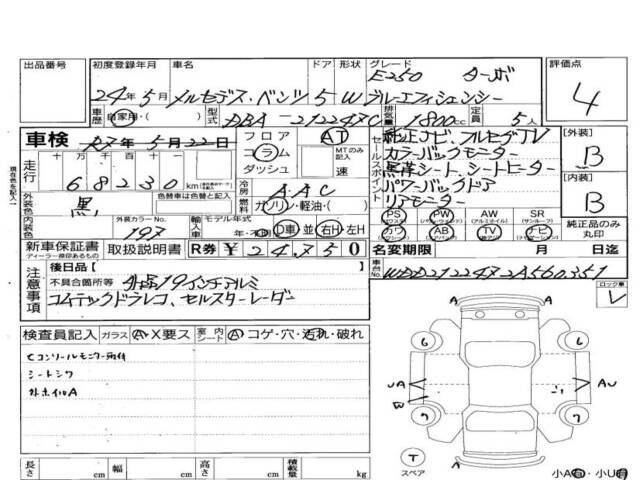 出品番号 初度登録年月 車名 ドア 形状 グレード 評価点
E250 ターボ
24年5月 メルセデス・ベンツ 5 W ブルーエフィシェンシー 4
車歴 自家用・( ) 型式 DBA-212247C 排気量 1800cc 定員 5人
車検 R7年5月22日 フロア コラム ダッシュ AT MTのみ記入 速
セールスポイント 純正ナビ・フルセグTV
カラーバックモニター
黒革シート、シートヒーター
パワーバックドア
リアモニター
[外装] B
[内装] B
走行 十万 万 千 百 十 km
68230
冷房 AAC
外装色 黒 色替車は色替と記入 燃料 ガソリン・軽油・( )
内装色 外装カラーNo. 197 輸入車 モデル年式 年・ D車 並 右H 左H
PS PW AW SR
カワ AB TV ナビ
純正品のみ丸印
新車保証書 ディーラー捺印あるもの 取扱説明書 R券 ¥ 24,750
名変期限 月 日迄
注意事項 後日品[ ]
不具合箇所等 社外19インチアルミ
コムテックドラレコ、セルスターレーダー
車台No. WDD2122472A560351
ロック車 レ
検査員記入 ガラス A・X要ス 室内シート A コゲ・穴・汚れ・破れ
Cコンソールモニター取付
シートシワ
外ホイルA
A
6 6
UA AU
W
7 7
T スペア
A
長さ cm 幅 cm 高さ cm 積載量 kg
小A有・小U有